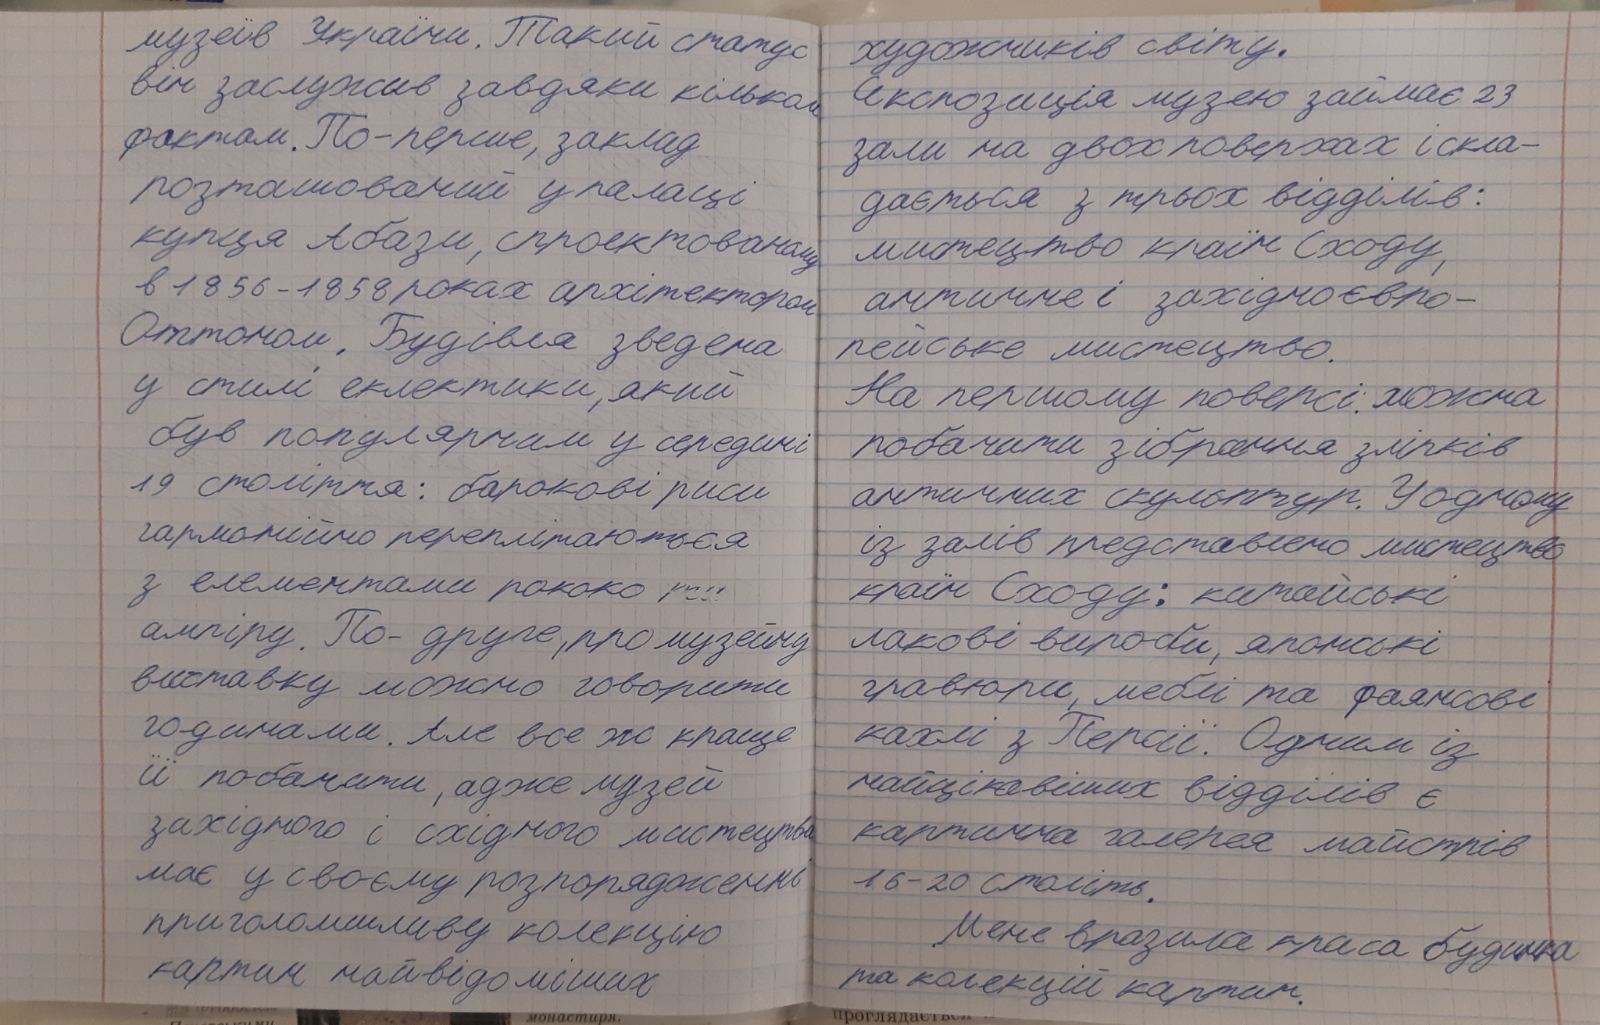 музеїв України. Такий статус
він заслужив завдяки кільком
фактам. По-перше, заклад
розташований у палаці
купця Абази, спроектованому
в 1856-1858 роках архітектором
Оттоном. Будівля зведена
у стилі еклектики, який
був популярним у середині
19 століття: барокові риси
гармонійно переплітаються
з елементами рококо
ампіру. По-друге, про музейну
виставку можно говорити
годинами. Але все ж краще
її побачити, адже музей
західного і східного мистецтва
має у своєму розпорядженні
приголомшливу колекцію
картин найвідоміших
художників світу.
Експозиція музею займає 23
зали на двох поверхах і скла-
дається з трьох відділів:
мистецтво країн Сходу,
античне і західноєвро-
пейське мистецтво.
На першому поверсі можна
побачити зібрання зліпків
античних скульптур. У одному
із залів представлено мистецтво
країн Сходу: китайські
лакові вироби, японські
гравюри, меблі та фаянсові
кахлі з Персії. Одним із
найцікавіших відділів є
картинна галерея майстрів
16-20 століть.
Мене вразила краса будинка
та колекцій картин.
монастиря.
проглядається